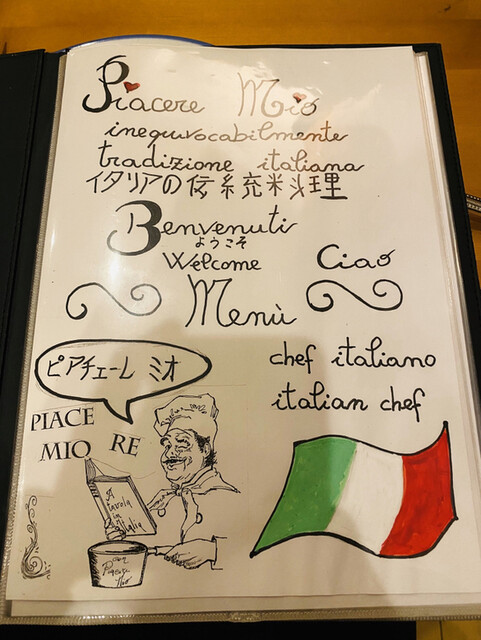 Piacere Mió
inequivocabilmente
tradizione italiana
イタリアの伝統料理
Benvenuti
ようこそ
Welcome
Ciao
Menù
ピアチェーレ ミオ
chef italiano
italian chef
PIACE
RE
MIO
A
tavola in
Italia
con
Piacere
Mio